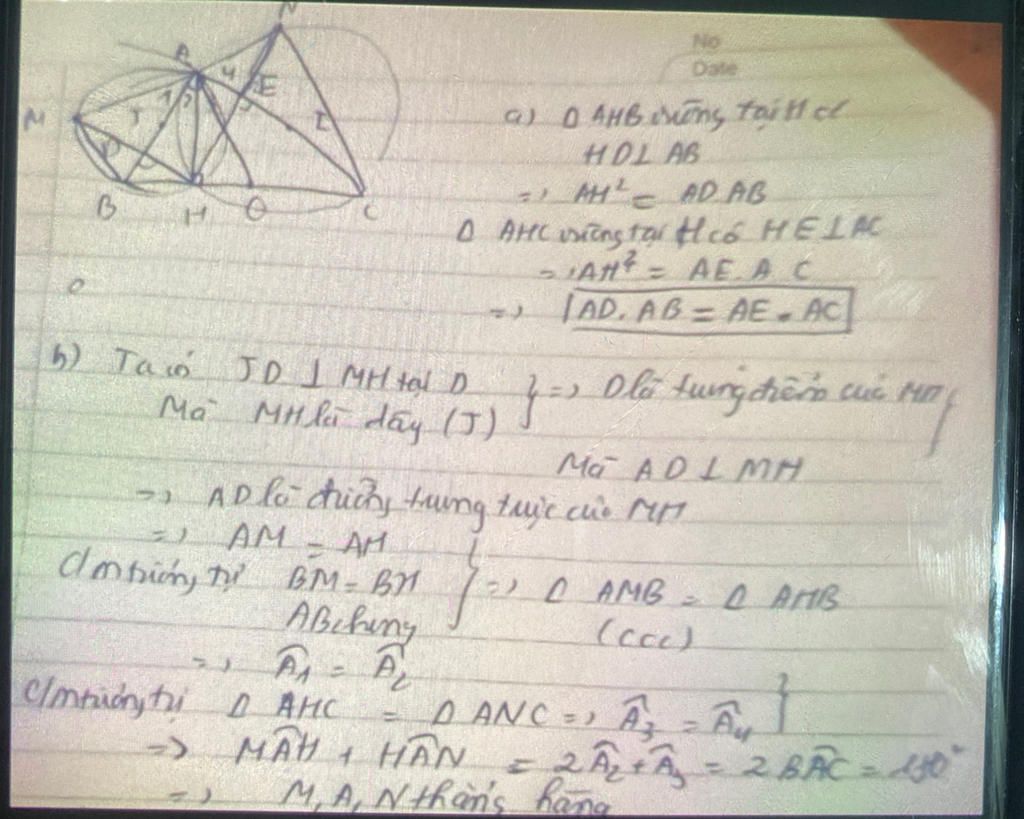 No
Date
N
A
4
E
M
1
2
3
J
I
D
B
H
O
C
a) Δ AHB vuông tại H có
HD⊥ AB
=> AH² = AD.AB
Δ AHC vuông tại H có HE⊥AC
=> AH² = AE.AC
=> AD.AB = AE.AC
b) Ta có JD ⊥ MH tại D
Mà MH là dây (J)
} => D là trung điểm của MH }
Mà AD ⊥ MH
=> AD là đường trung trực của MH
=> AM = AH
C/m tương tự BM = BH
AB chung
} => Δ AMB = Δ AHB
(ccc)
=> Â1 = Â2
C/m tương tự Δ AHC = Δ ANC => Â3 = Â4 }
=> MÂH + HÂN = 2Â2 + Â3 = 2BÂC = 180°
=> M, A, N thẳng hàng